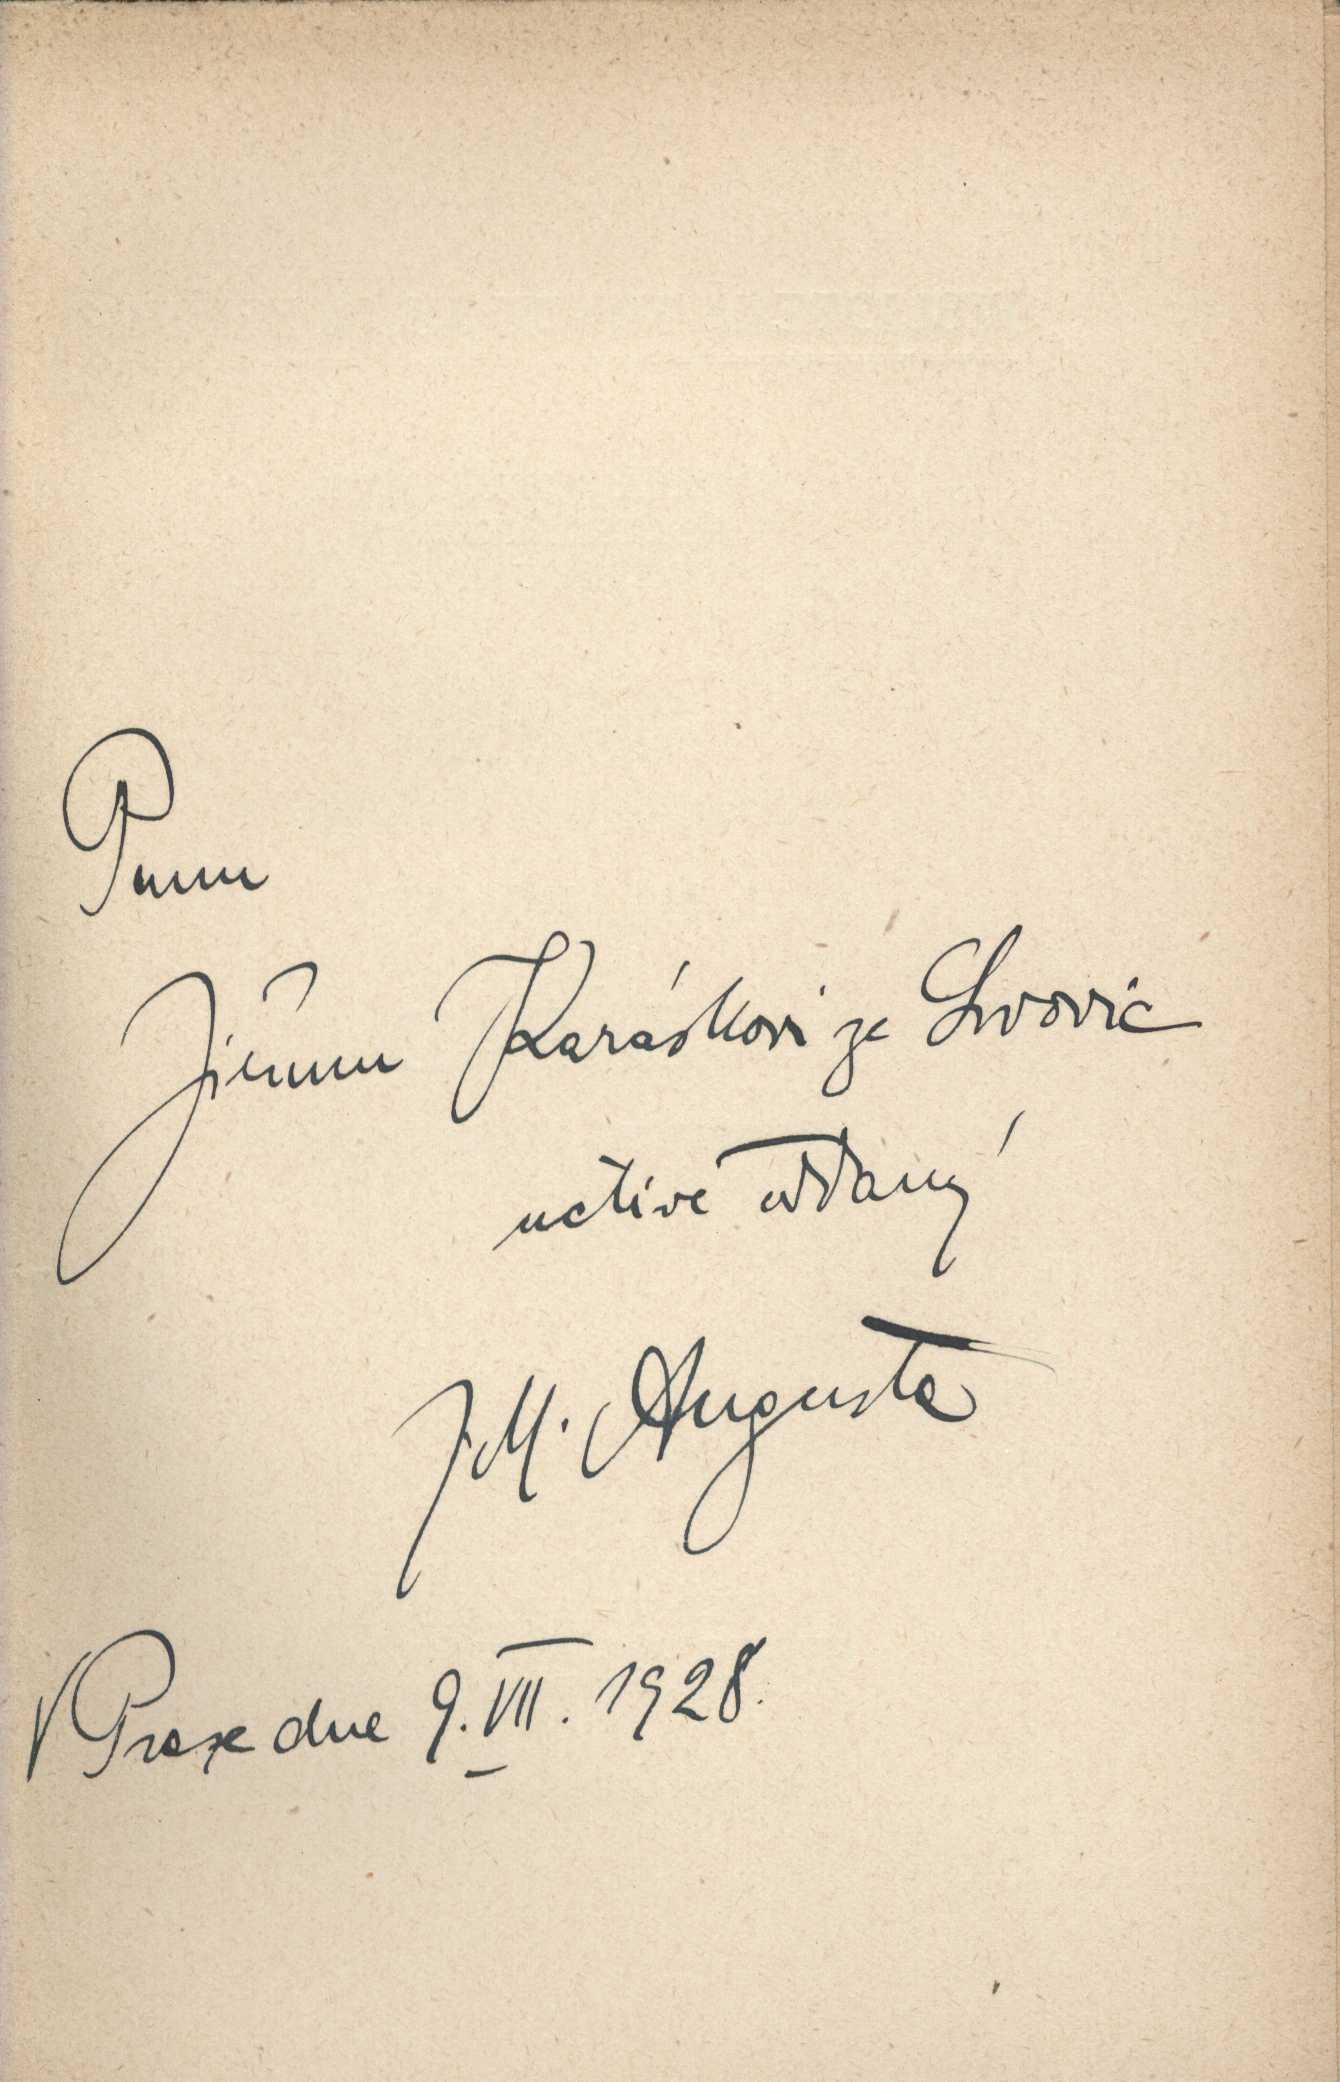 Panu
Jiřímu Karáskovi ze Lvovic
uctivě oddaný
J. M. Augusta
V Praze dne 9. VII. 1928.